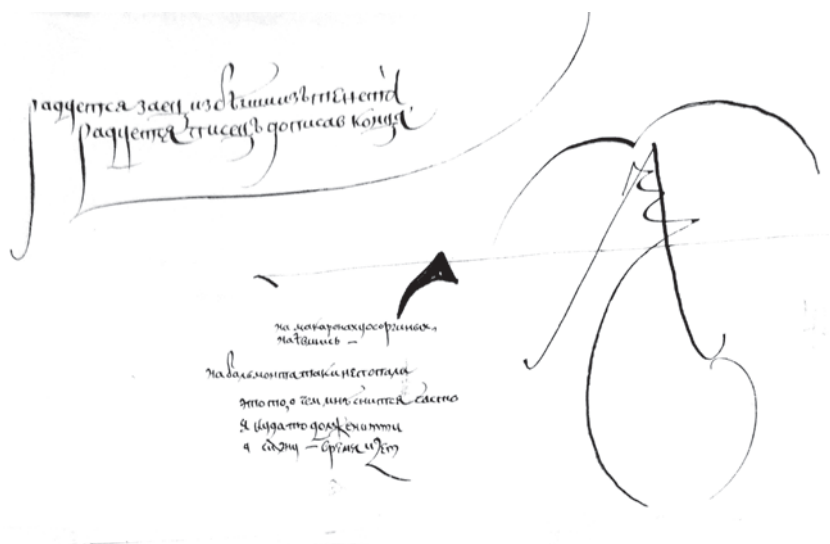 радуется заец избывши изъ тенета
радуется писецъ дописав конца
на макаронах у осоргиных,
наѣвшись —
на бальмонта таки не стопала
это то, о чем мнѣ снится часто
я куда то должен итти
а сижу — время идет